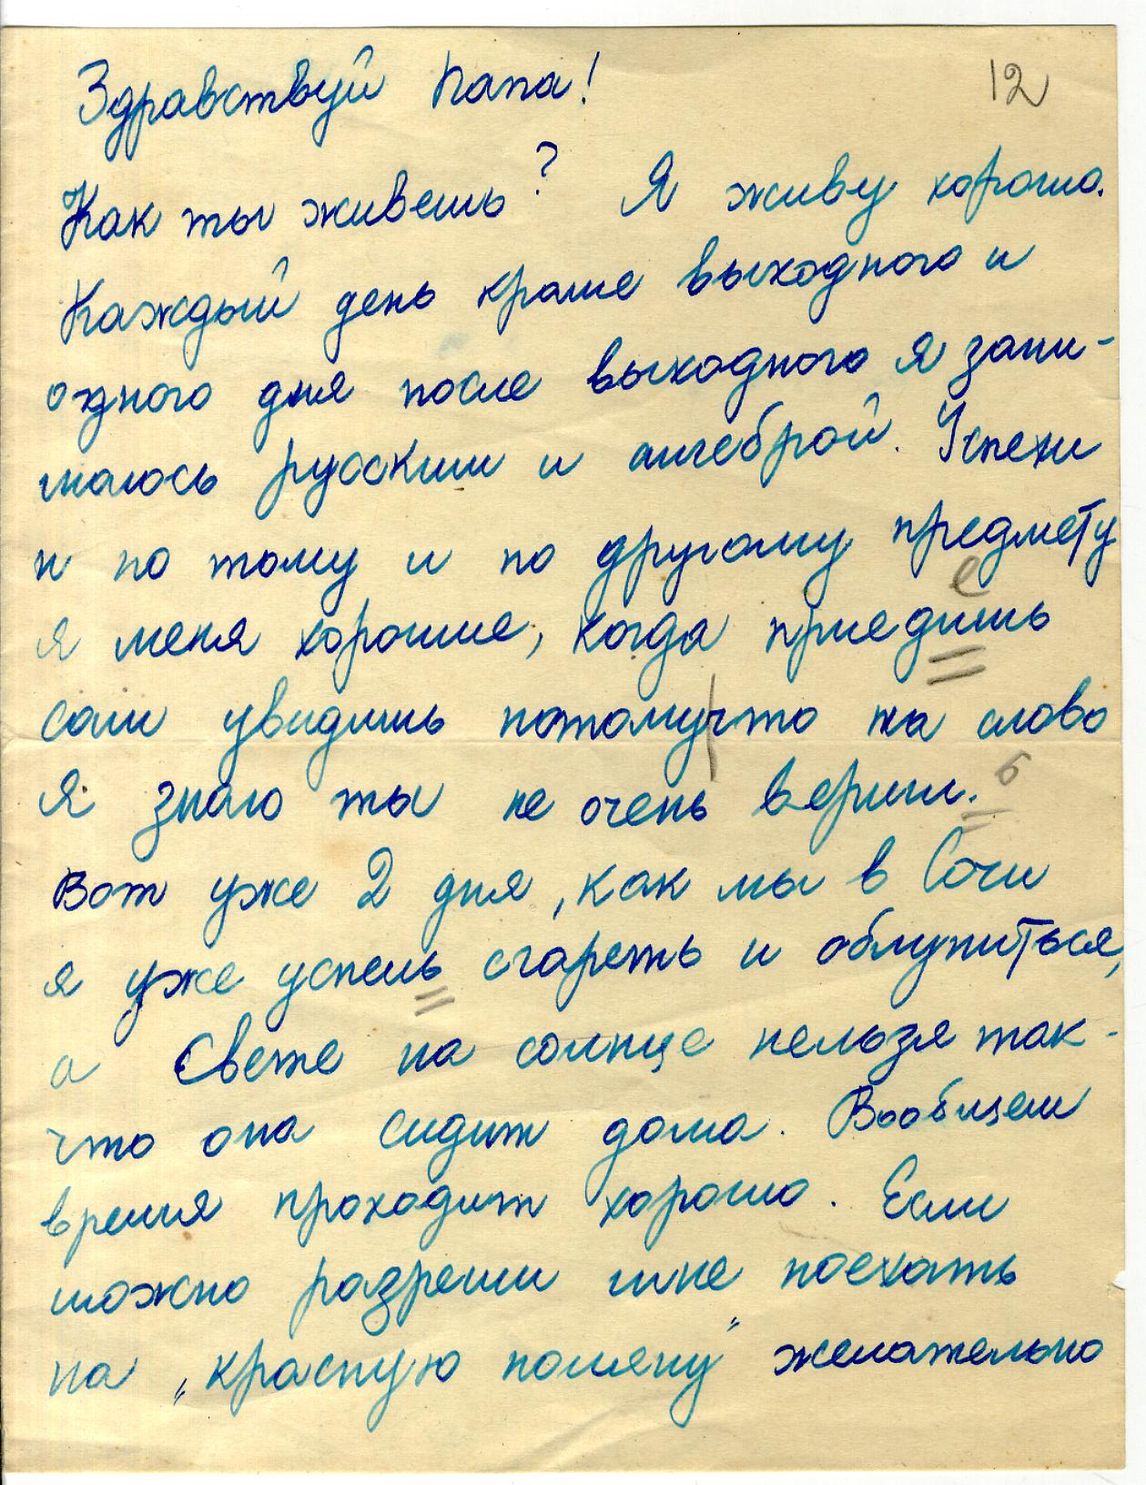 12
Здравствуй папа!
Как ты живешь? Я живу хорошо.
Каждый день кроме выходного и
одного дня после выходного я зани-
маюсь русским и алгеброй. Успехи
и по тому и по другому предмету
я меня хорошие, когда приедишь
е
сам увидишь потомучто на слово
Я знаю ты не очень вериш.
ь
Вот уже 2 дня, как мы в Сочи
я уже успель сгареть и облупиться,
а Свете на солнце нельзя так-
что она сидит дома. Вообщем
время проходит хорошо. Если
можно разреши мне поехать
на „красную поляну" желательно